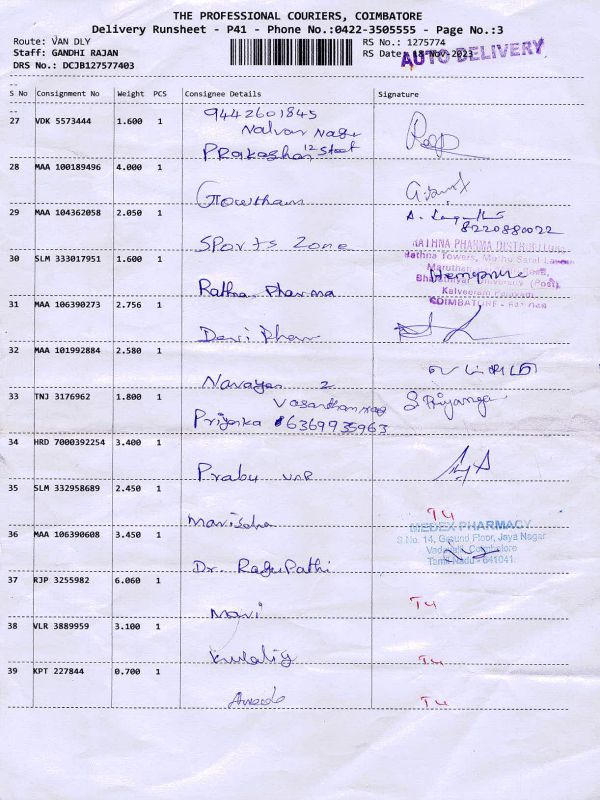 THE PROFESSIONAL COURIERS, COIMBATORE
Delivery Runsheet - P41 - Phone No.:0422-3505555 - Page No.:3
Route: VAN DLY
RS No.: 1275774
Staff: GANDHI RAJAN
RS Date: 18-Nov-2023
AUTO DELIVERY
DRS No.: DCJB127577403
S No Consignment No Weight PCS Consignee Details Signature
27 VDK 5573444 1.600 1 9442601845
Nagar
Prakashan 12 Street
28 MAA 100189496 4.000 1
Gowtham
29 MAA 104362058 2.050 1 8220880022
Sports Zone
30 SLM 333017951 1.600 1
RATHNA PHARMA DISTRIBUTORS
Rathna Towers,
Bharathiyar University (Post),
COIMBATORE -
Rathna Pharma
31 MAA 106390273 2.756 1
Devi Pharm
32 MAA 101992884 2.580 1
Narayan 2
33 TNJ 3176962 1.800 1 S Priyanga
Priyanka 6369935963
34 HRD 7000392254 3.400 1
Prabu
35 SLM 332958689 2.450 1 T4
MEDEX PHARMACY
S.No. 14, Ground Floor, Jaya Nagar
Vadavalli, Coimbatore
Tamil Nadu - 641041
36 MAA 106390608 3.450 1
Dr. Ragupathi
37 RJP 3255982 6.060 1 T4
Mani
38 VLR 3889959 3.100 1
T4
39 KPT 227844 0.700 1
T4